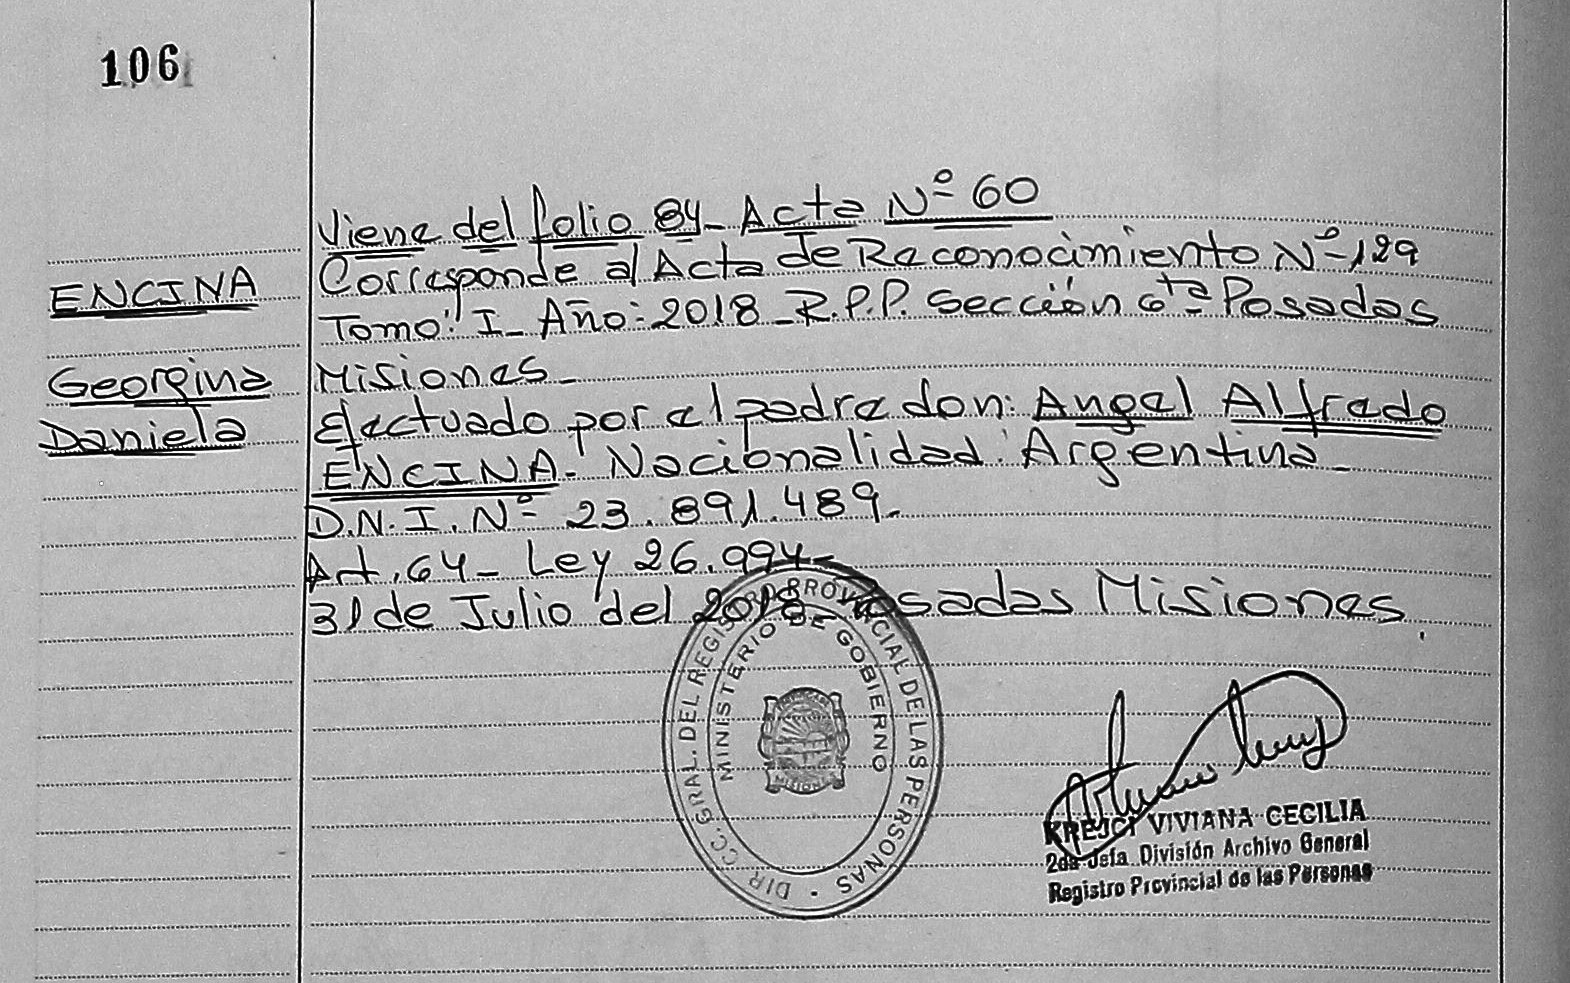 106
Viene del folio 84- Acta Nº 60
ENCINA
Corresponde al Acta de Reconocimiento Nº 129
Tomo: I_ Año: 2018_R.P.P. Sección 6ta Posadas
Georgina
Misiones_
Daniela
Efectuado por el padre don: Angel Alfredo
ENCINA. Nacionalidad: Argentina_
D.N.I. Nº 23.891.489.
Art. 64- Ley 26.994-
31 de Julio del 2018 Posadas Misiones.
DIR. CC. GRAL. DEL REGISTRO PROVINCIAL DE LAS PERSONAS
MINISTERIO DE GOBIERNO
MISIONES
KREJCI VIVIANA CECILIA
2da Jefa División Archivo General
Registro Provincial de las Personas